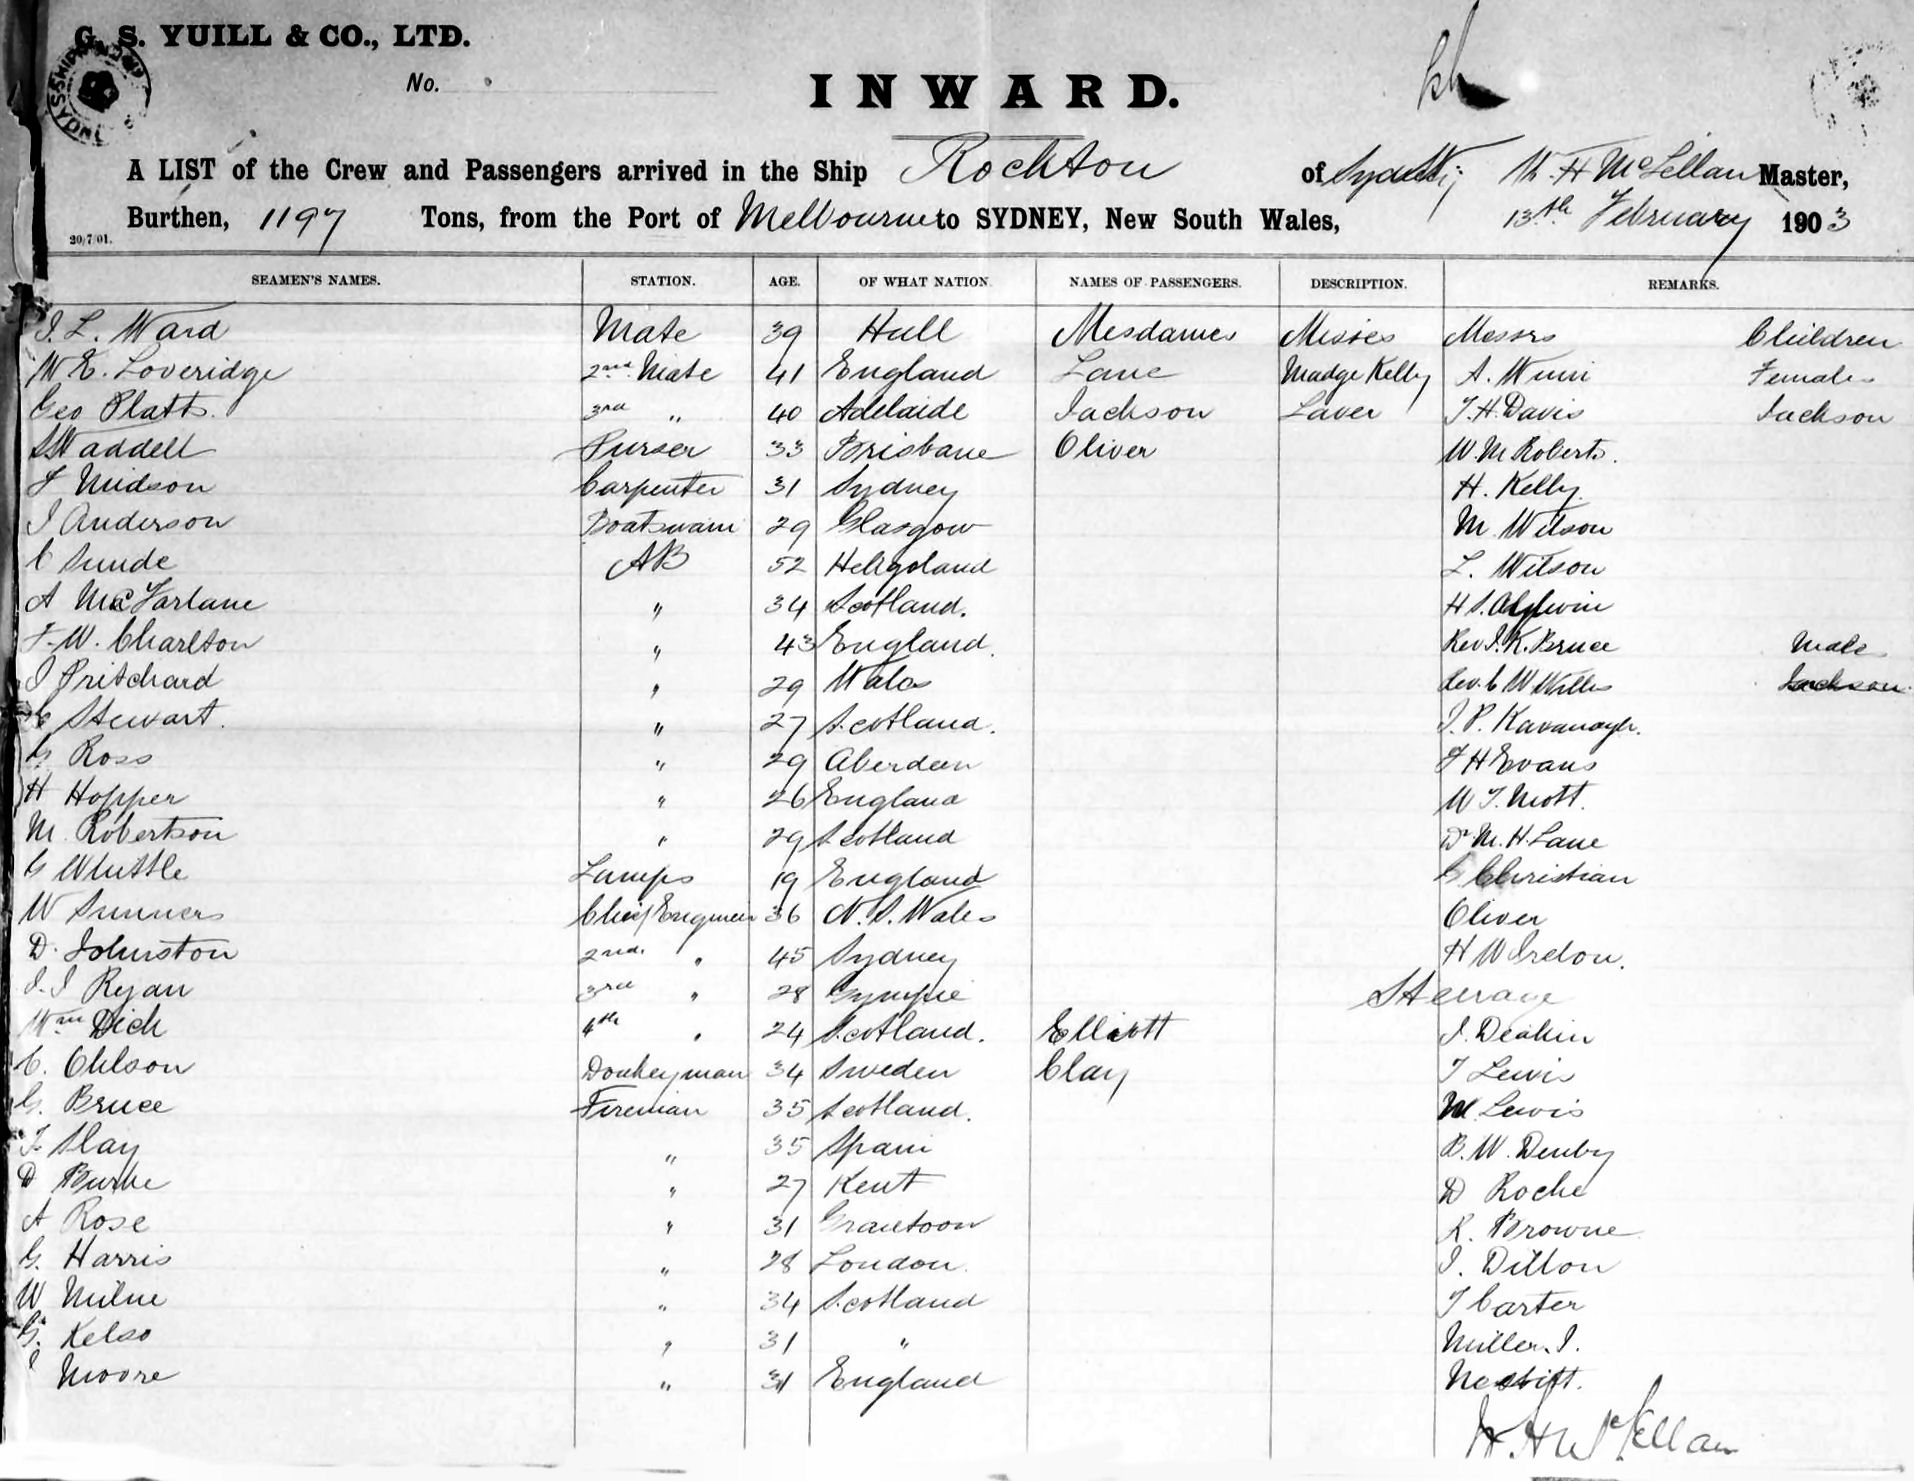 G. S. YUILL & CO., LTD.
No.
INWARD.
A LIST of the Crew and Passengers arrived in the Ship Rockton of Sydney W. H McLellan Master,
Burthen, 1197 Tons, from the Port of Melbourne to SYDNEY, New South Wales, 13th February 1903
20/7/01.
SEAMEN'S NAMES. STATION. AGE. OF WHAT NATION. NAMES OF PASSENGERS. DESCRIPTION. REMARKS.
J. L. Ward Mate 39 Hull Mesdames Misses Messrs Children
W E. Loveridge 2nd Mate 41 England Lane Madge Kelly A. Females
Geo Platts. 3rd " 40 Adelaide Jackson Laver T. H. Davis Jackson
S Waddell Purser 33 Brisbane Oliver W. M Roberts.
F Midson Carpenter 31 Sydney H. Kelly.
J Anderson Boatswain 29 Glasgow M. Wilson
C Sunde AB 52 Heligoland L. Wilson
A McFarlane " 34 Scotland. H S.
F. W. Charlton " 43 England. Rev J. K. Bruce Male
J Pritchard " 29 Wales Rev. C W Willis Jackson
C Stewart. " 27 Scotland. J. P. Kavanagh.
G Ross " 29 Aberdeen F H Evans
H Hopper " 26 England W T. Mott.
M. Robertson " 29 Scotland Dr. M. H. Lane
G Whittle Lamps 19 England C Christian
W Sumners Chief Engineer 36 N. S. Wales Oliver
D. Johnston 2nd " 45 Sydney H W Iredon.
J. J Ryan 3rd " 28 Gympie Steerage
Wm Dick 4th " 24 Scotland. Elliott J. Deakin
C. Ohlson Donkeyman 34 Sweden Clay T Lewis
G. Bruce Fireman 35 Scotland. W. Lewis
F. Slay " 35 Spain B. W. Denby
D Burke " 27 Kent D Roche
A Rose " 31 Grantoon R. Browne
G. Harris " 28 London. J. Dillon
W Milne " 34 Scotland T Carter
G. Kelso " 31 " Miller. J.
J Moore " 31 England Nesbitt.
W. H McLellan